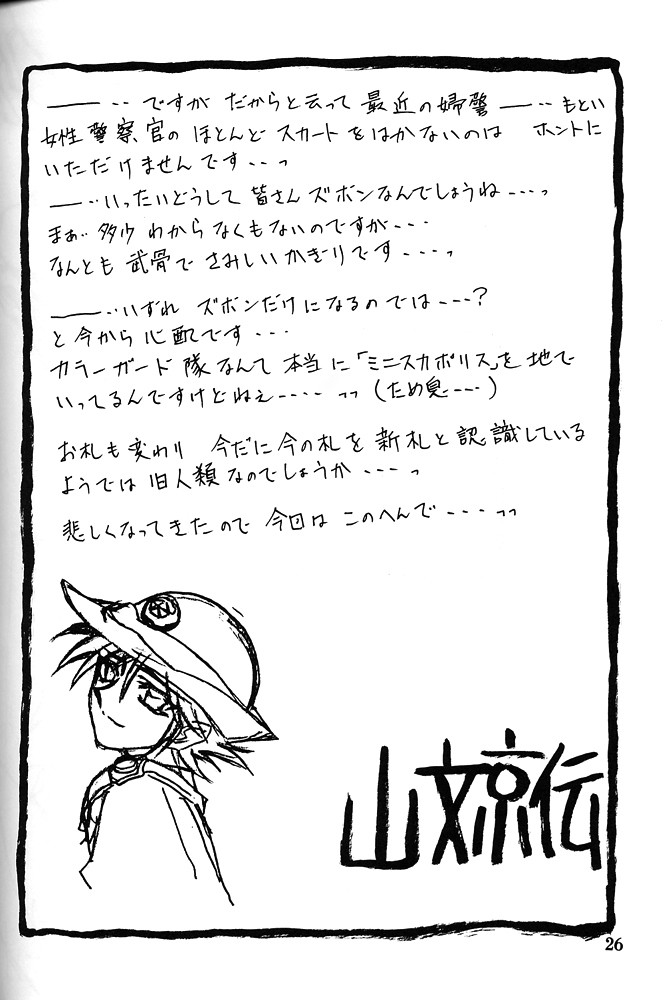 ――‥ ですが だからと云って 最近の婦警――‥ もとい
女性警察官の ほとんど スカートをはかないのは ホントに
いただけませんです‥‥っ
――‥いったいどうして 皆さん ズボンなんでしょうね‥‥っ
まぁ‥ 多少 わからなくもないのですが‥‥
なんとも 武骨で さみしいかぎりです‥‥っ
――‥いずれ ズボンだけになるのでは‥‥?
と今から心配です‥‥
カラーガード隊なんて 本当に「ミニスカポリス」を地で
いってるんですけどねぇ‥‥‥っっ (ため息‥‥)
お札も変わり 今だに今の札を 新札と認識している
ようでは 旧人類なのでしょうか‥‥っ
悲しくなってきたので 今回は このへんで‥‥っっ
山文京伝
26